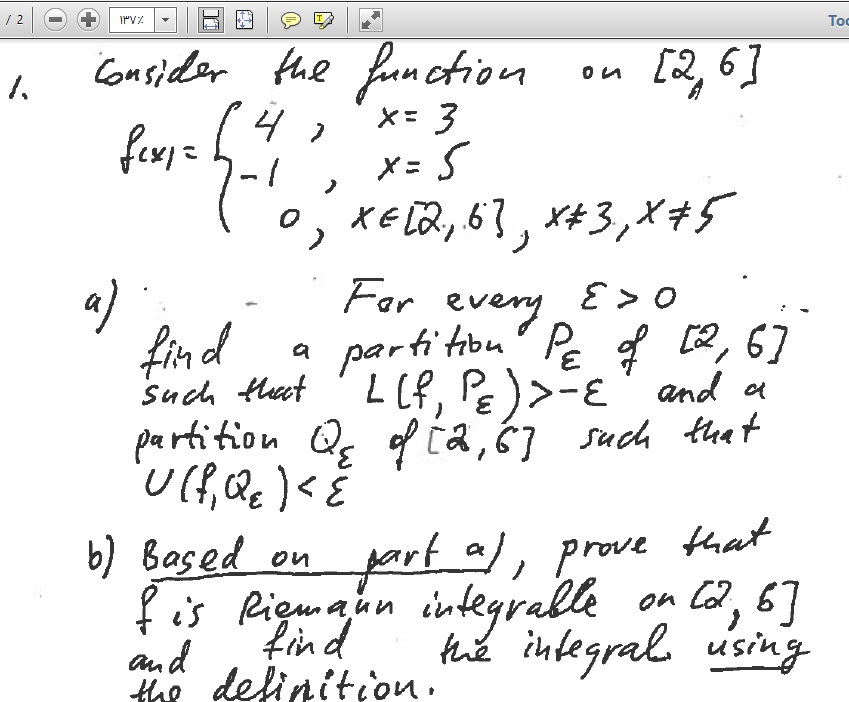 / 2 ١٣٧٪ Too
1. Consider the function on [2, 6]
f(x) = { 4 , x = 3
-1 , x = 5
0 , x ∈ [2, 6] , x ≠ 3, x ≠ 5
a) For every ε > 0
find a partition Pε of [2, 6]
such that L(f, Pε) > -ε and a
partition Qε of [2, 6] such that
U(f, Qε) < ε
b) Based on part a), prove that
f is Riemann integrable on [2, 6]
and find the integral using
the definition.